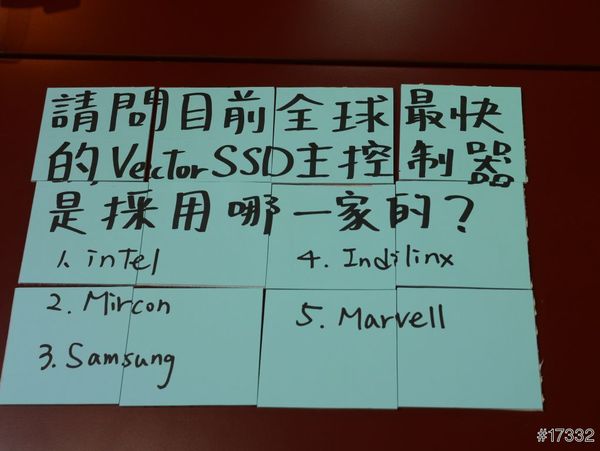 請問目前全球最快
的Vector SSD主控制器
是採用哪一家的？
1. intel
2. Mircon
3. Samsung
4. Indilinx
5. Marvell
#17332